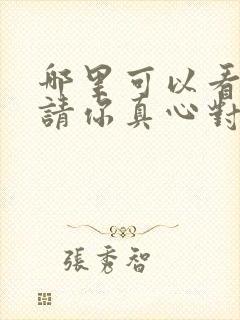 哪里可以看
請你真心對
張秀智